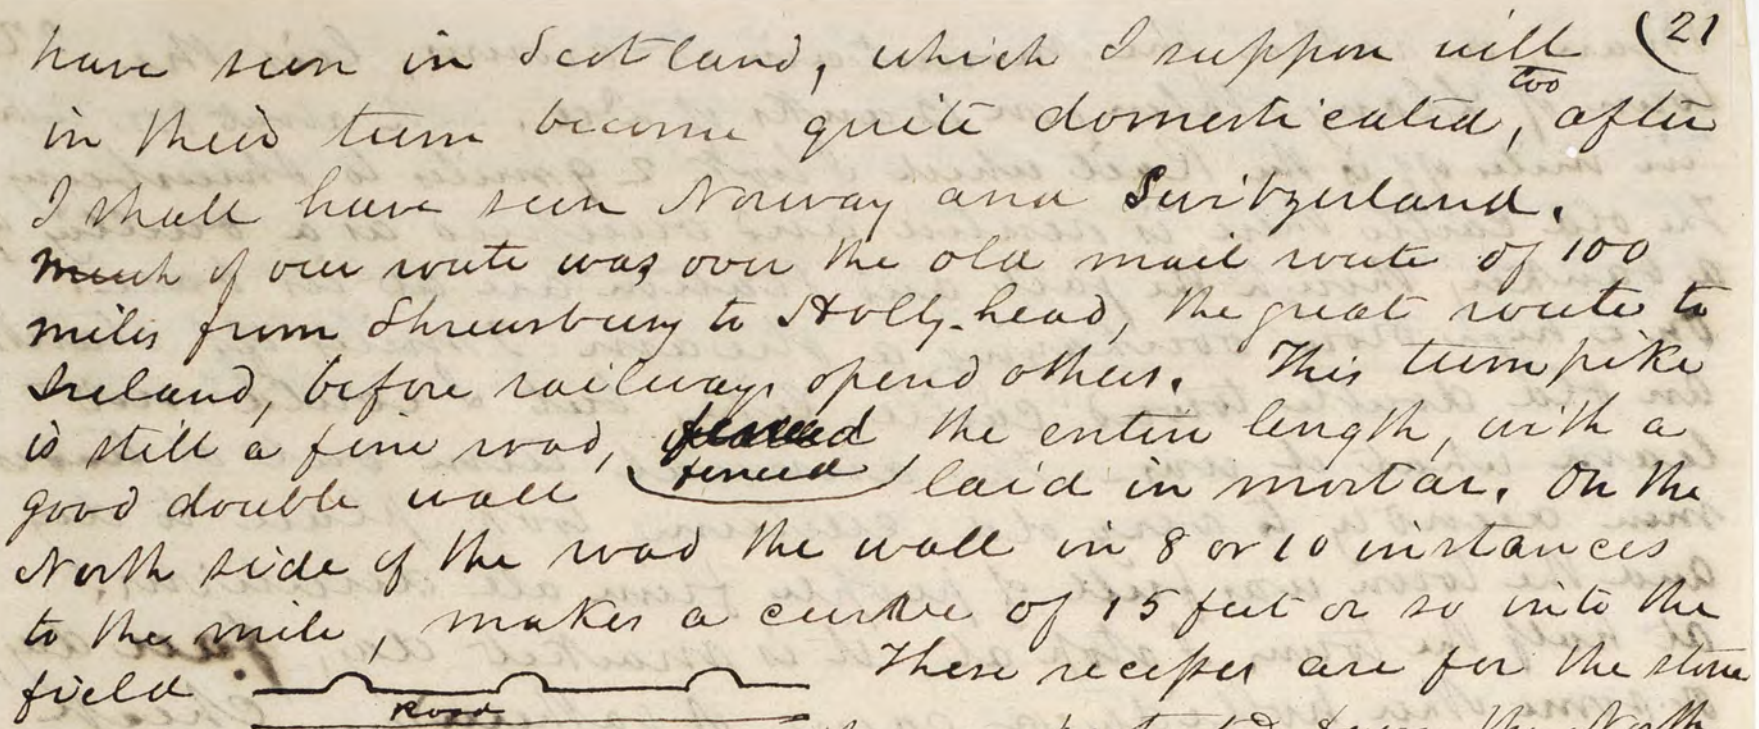 (21
have seen in Scotland, which I suppose will
too
in their turn become quite domesticated, after
I shall have seen Norway and Switzerland.
Much of our route was over the old mail route of 100
miles from Shrewsbury to Holly-head, the great route to
Ireland, before railways opened others. This turnpike
is still a fine road, the entire length, with a
fenced
good double wall laid in mortar. On the
North side of the road the wall in 8 or 10 instances
to the mile, makes a curve of 15 feet or so into the
field These recesses are for the stone
Road
the North